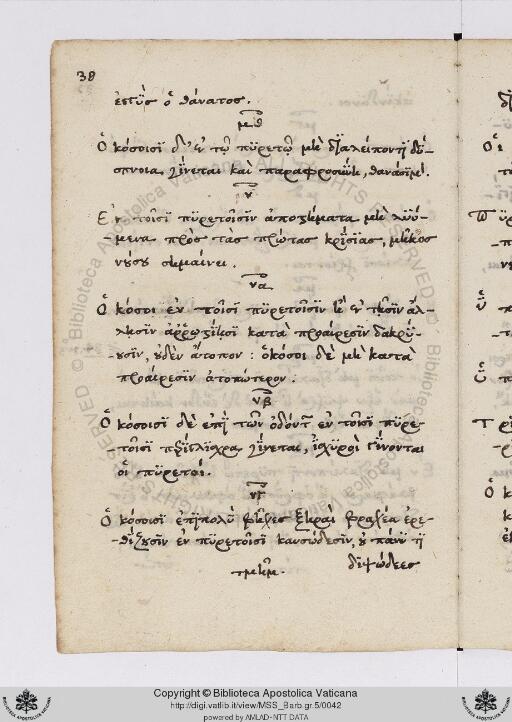 38
ἐγγὺς ὁ θάνατος.
μθ
Ὁκόσοισι δ' ἐν τῷ πυρετῷ μὴ διαλείποντι δύ-
σπνοια γίνεται καὶ παραφροσύνη, θανάσιμ.
ν
Ἐν τοῖσι πυρετοῖσιν ἀποστήματα μὴ λυό-
-μενα πρὸς τὰς πρώτας κρίσιας, μῆκος
νούσου σημαίνει.
να
Ὁκόσοι ἐν τοῖσι πυρετοῖσιν ἢ ἐν τῇσιν ἄλ-
-λῃσιν ἀρρωστίῃσι κατὰ προαίρεσιν δακρύ-
-ουσιν, οὐδὲν ἄτοπον· ὁκόσοι δὲ μὴ κατὰ
προαίρεσιν ἀτοπώτερον.
νβ
Ὁκόσοισι δὲ ἐπὶ τῶν ὀδόντ ἐν τοῖσι πυρε-
τοῖσι περίγλισχρα γίνεται, ἰσχυροὶ γίνονται
οἱ πυρετοί.
νγ
Ὁκόσοισι ἐπιπολὺ βῆχες ξηραὶ βραχέα ἐρε-
-θίζουσιν ἐν πυρετοῖσι καυσώδεσιν, οὐ πάνυ τι
διψώδεες
Copyright © Biblioteca Apostolica Vaticana
http://digi.vatlib.it/view/MSS_Barb.gr.5/0042
powered by AMLAD-NTT DATA